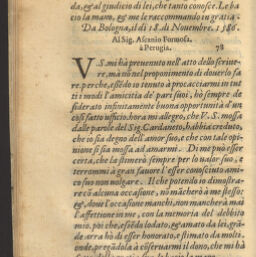 da, & al giudicio di lei, che tanto conosce. Le ba
cio la mano, & me le raccommando in gratia.
Da Bologna, il dì 18 di Novembre. 1586.
Al Sig. Ascanio Formosa,
à Perugia. 78
VS. mi hà prevenuto nell'atto dello scrive-
re, mà nò nel proponimento di doverlo fa
re. perche, essendo io tenuto à procacciarmi in tut
ti i modi l'amicitia de' pari suoi, hò sempre de
siderato infinitamente buona opportunità d'un
così fatto ufficio. hora mi allegro, che V. S. mossa
dalle parole del Sig. Cardaneto, habbia creduto,
che io sia degno dell'amor suo, e che con tale opi-
nione si sia mossa ad amarmi. Di me può esser
certa, che la stimerò sempre per lo valor suo, e
terrommi à gran favore l'esser conosciuto ami-
co suo non volgare. Il che potendo io dimostra-
re cò alcuna occasione, nò macherò à me stesso:
&, dove l'occasione manchi, non mancherà mai
l'affettione in me, con la memoria del debbito
mio. poi che, essèdo lodato, & amato da lei, grà-
de arra hò di esser honorato, e stimato da molti.
onde, pregàdola à còservarmi il dono, che mi hà